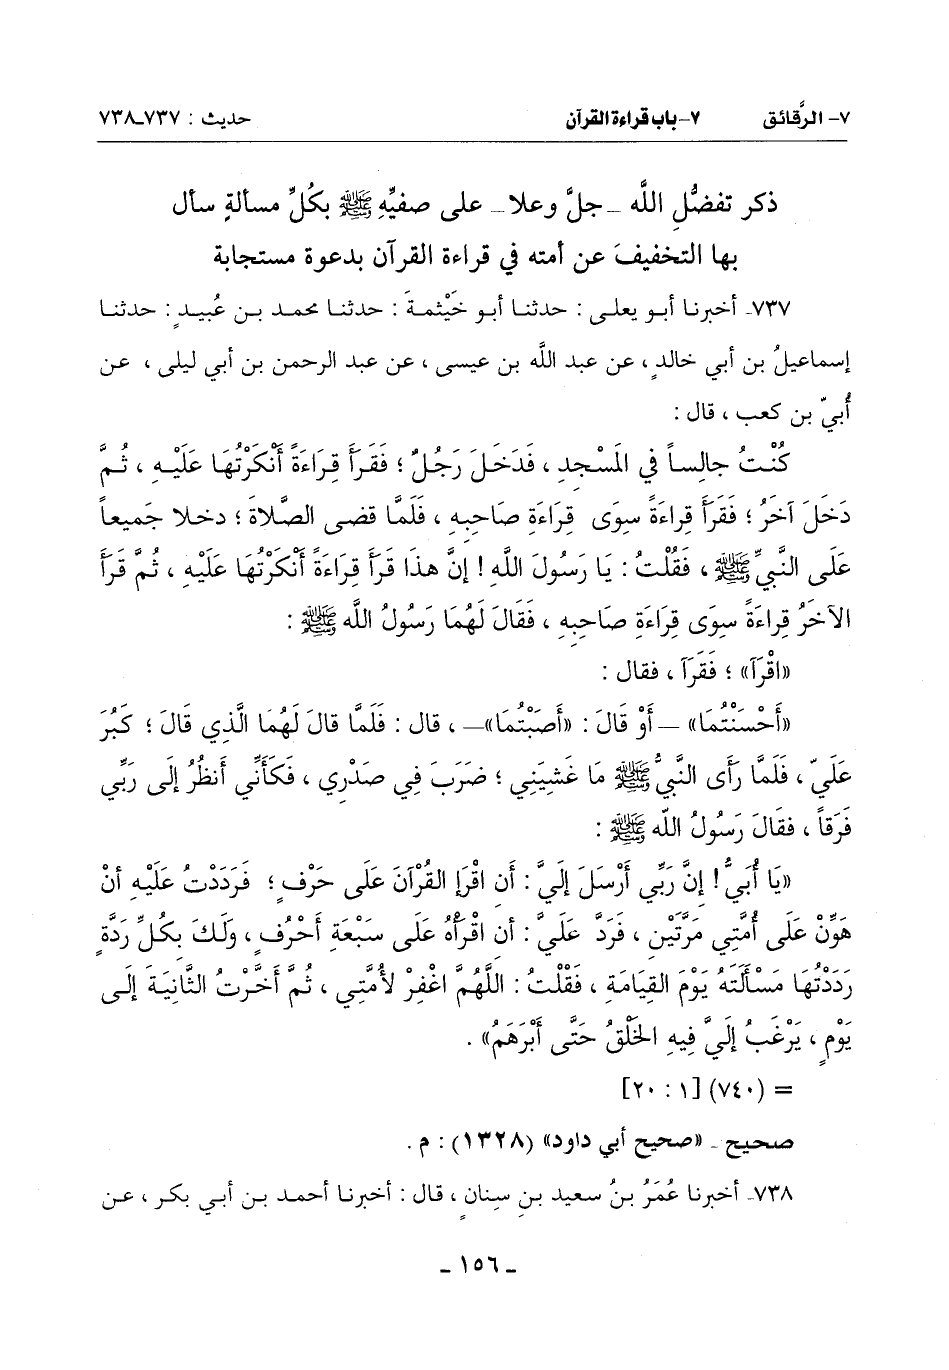 ٧- الرَّقائق ٧-باب قراءة القرآن حديث : ٧٣٧-٧٣٨
ذكر تفضُّلِ اللَّه -جلَّ وعلا- على صفيِّهِ ﷺ بكُلِّ مسألةٍ سأل
بها التخفيفَ عن أمته في قراءة القرآن بدعوة مستجابة
٧٣٧- أخبرنا أبو يعلى : حدثنا أبو خَيْثمةَ : حدثنا محمد بن عُبيدٍ : حدثنا
إسماعيلُ بن أبي خالدٍ ، عن عبد اللَّه بن عيسى ، عن عبد الرحمن بن أبي ليلى ، عن
أُبيّ بن كعب ، قال :
كُنْتُ جالِساً في المَسْجدِ ، فَدَخَلَ رَجُلٌ ؛ فَقَرَأَ قِرَاءَةً أَنْكَرْتُهَا عَلَيْهِ ، ثُمَّ
دَخَلَ آخَرُ ؛ فَقَرَأَ قِراءَةً سِوَى قِرَاءَةِ صَاحِبِهِ ، فَلَمَّا قضى الصَّلاةَ ؛ دخلا جَميعاً
عَلَى النَّبيِّ ﷺ ، فَقُلْتُ : يَا رَسُولَ اللَّهِ ! إنَّ هذَا قَرَأَ قِرَاءَةً أَنْكَرْتُهَا عَلَيْهِ ، ثُمَّ قَرَأَ
الآخَرُ قِرَاءَةً سِوَى قِرَاءَةِ صَاحِبِهِ ، فَقَالَ لَهُمَا رَسُولُ اللَّه ﷺ :
«اقْرَآ» ؛ فَقَرَآ ، فقال :
«أَحْسَنْتُمَا» — أَوْ قَالَ : «أَصَبْتُمَا»— ، قال : فَلَمَّا قالَ لَهُمَا الَّذِي قَالَ ؛ كَبُرَ
عَلَيَّ ، فَلَمَّا رَأَى النَّبيُّ ﷺ مَا غَشِيَنِي ؛ ضَرَبَ فِي صَدْرِي ، فَكَأَنِّي أَنظُرُ إِلَى رَبِّي
فَرَقاً ، فقَالَ رَسُولُ اللَّه ﷺ :
«يَا أُبَيُّ ! إنَّ رَبِّي أَرْسَلَ إلَيَّ : أَن اقْرَإِ القُرْآنَ عَلَى حَرْفٍ ؛ فَرَدَدْتُ عَلَيْهِ أنْ
هَوِّنْ عَلَى أُمَّتِي مَرَّتَيْنِ ، فَرَدَّ عَلَيَّ : أن اقْرَأْهُ عَلَى سَبْعَةِ أَحْرُفٍ ، ولَكَ بكُلِّ رَدَّةٍ
رَدَدْتُهَا مَسْأَلَتَهُ يَوْمَ القِيَامَةِ ، فَقُلْتُ : اللَّهُمَّ اغْفِرْ لأُمَّتِي ، ثُمَّ أَخَّرْتُ الثَّانِيَةَ إلَى
يَوْمٍ ، يَرْغَبُ إلَيَّ فِيهِ الخَلْقُ حَتَّى أَبْرَهَمُ» .
= (٧٤٠) [١ : ٢٠]
صحيح - «صحيح أبي داود» (١٣٢٨) : م .
٧٣٨- أخبرنا عُمَرُ بنُ سعيد بنِ سِنانٍ ، قال : أخبرنا أحمد بن أبي بكر ، عن
- ١٥٦ -